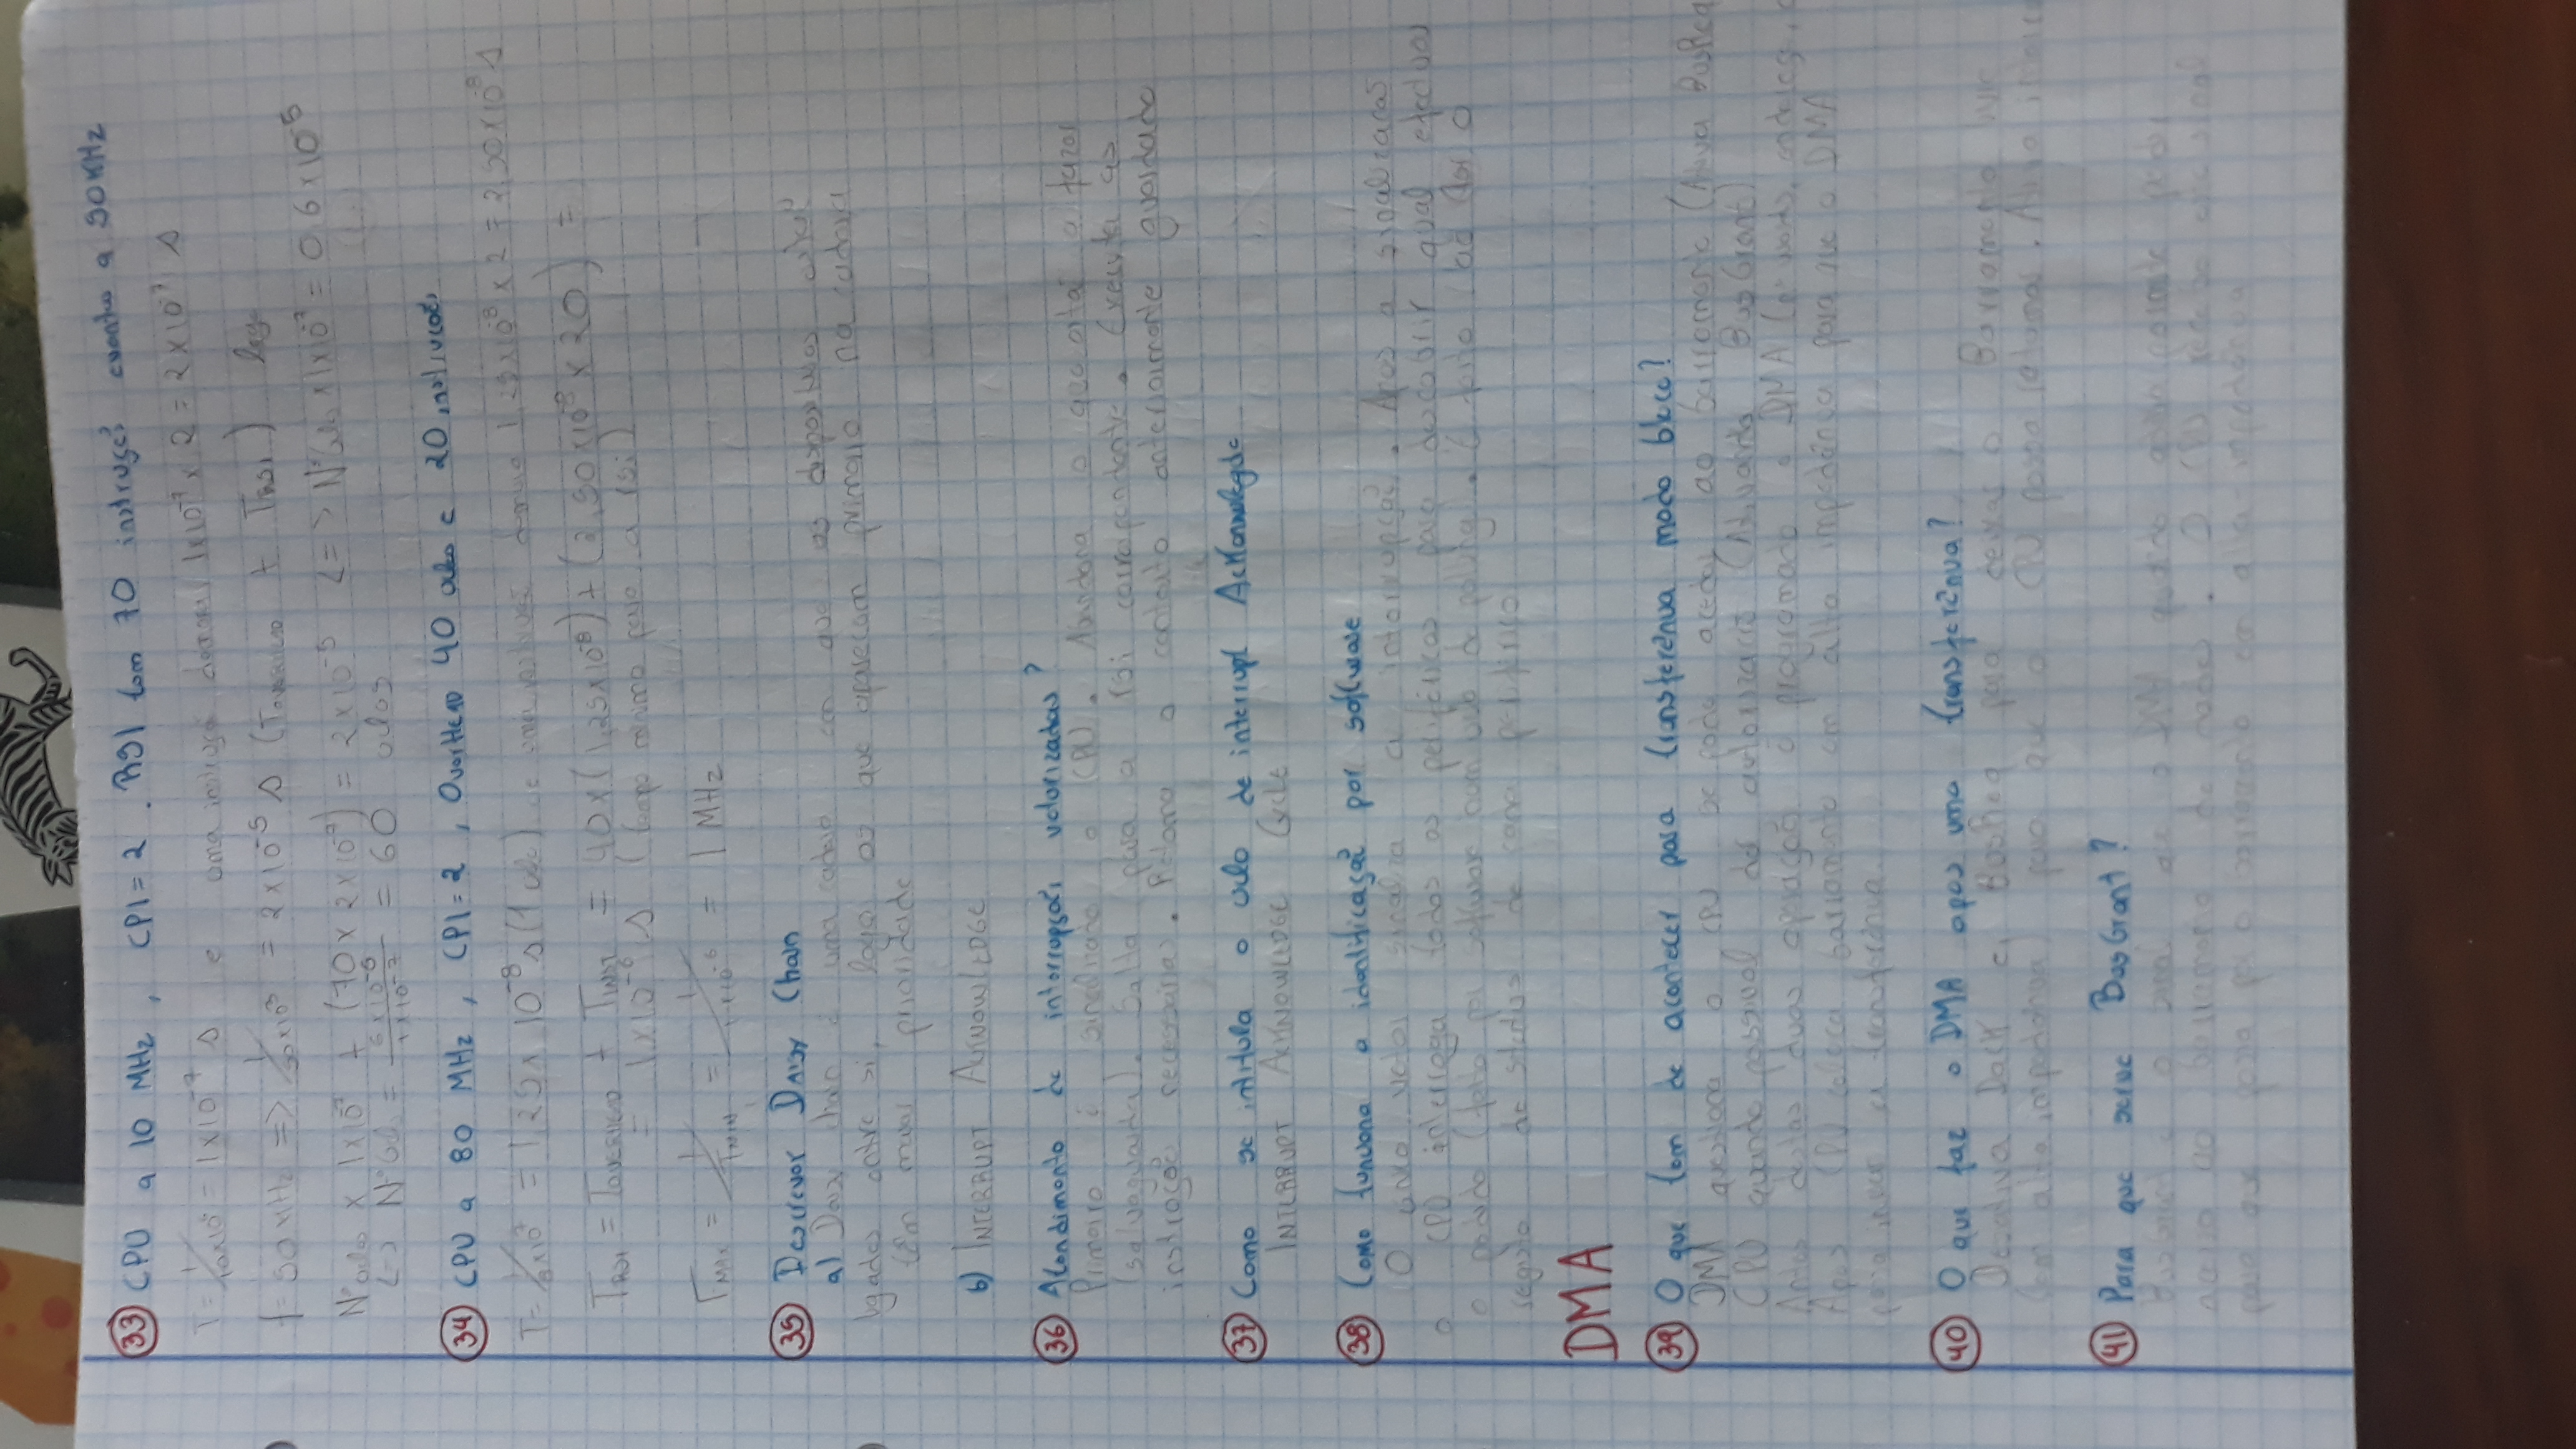 33 CPU a 10 MHz, CPI=2. RSI tem 70 instruções eventos a 50 kHz
T= 1/10x10⁶ = 1x10⁻⁷ s e uma instrução demora 1x10⁻⁷ x 2 = 2x10⁻⁷ s
f= 50 kHz => 1/50x10³ = 2x10⁻⁵ s (Toverhead + TRSI) logo
Nºciclos x 1x10⁻⁷ + (70 x 2x10⁻⁷) = 2x10⁻⁵ <=> NºCiclos x 1x10⁻⁷ = 0,6x10⁻⁵
<=> NºCiclos = 6x10⁻⁶/1x10⁻⁷ = 60 ciclos
34 CPU a 80 MHz, CPI=2, OverHead 40 ciclos e 20 instruções
T= 1/8x10⁷ = 1,25x10⁻⁸ s (1 ciclo) e uma instrução demora 1,25x10⁻⁸ x 2 = 2,50x10⁻⁸ s
TRSI = Toverhead + TINST = 40x(1,25x10⁻⁸) + (2,50x10⁻⁸ x 20) =
= 1x10⁻⁶ s (tempo mínimo para a rsi)
FMAX = 1/TMIN = 1/1x10⁻⁶ = 1 MHz
35 Descrever Daisy Chain
a) Daisy chain é uma cadeia em que os dispositivos estão
ligados entre si, logo os que aparecem primeiro na cadeia
têm maior prioridade
b) INTERRUPT ACKNOWLEDGE
36 Atendimento de interrupções vetorizadas?
Primeiro é sinalizado o CPU. Abandona o que está a fazer
(salvaguarda). Salta para a rsi correspondente. Executa as
instruções necessárias. Retoma o contexto anteriormente guardado
37 Como se intitula o ciclo de interrupt Acknowlegde
INTERRUPT ACKNOWLEDGE Cycle
38 Como funciona a identificação por software
O único vetor sinaliza a interrupção. Após a sinalização
o CPU interroga todos os periféricos para descobrir qual efectuou
o pedido (feito por software num ciclo de polling. É feito ao ler o
registo de status de cada periférico
DMA
39 O que tem de acontecer para transferência modo bloco?
DMA questiona o CPU se pode aceder ao barramento (Ativa BusReq
CPU quando possivel dá autorização (Ativando BusGrant)
Antes destas duas operações é programado o DMA (nº words, endereços,
Após CPU coloca barramento em alta impedância para que o DMA
a transferência.
40 O que faz o DMA apos uma transferência?
Desativa Dack e BusReq para deixar o Barramento livre
(em alta impedância) para que o CPU possa retomar. Ativa
41 Para que serve BusGrant?
BusGrant é o sinal o DMA
acesso ao barramento de dados. O CPU recebe este sinal
para que ponha o barramento em alta impedância